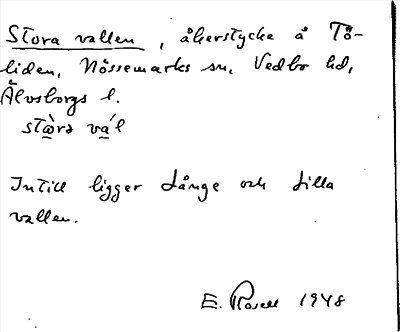 Stora vallen, åkerstycke å Tö-
liden, Nössemarks sn, Vedbo hd,
Älvsborgs l.
stɷ̀rə vá̱l
Intill ligger Långe och Lilla
vallen.
E. Rosell 1948